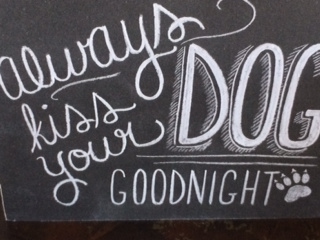 always
kiss
your DOG
GOODNIGHT